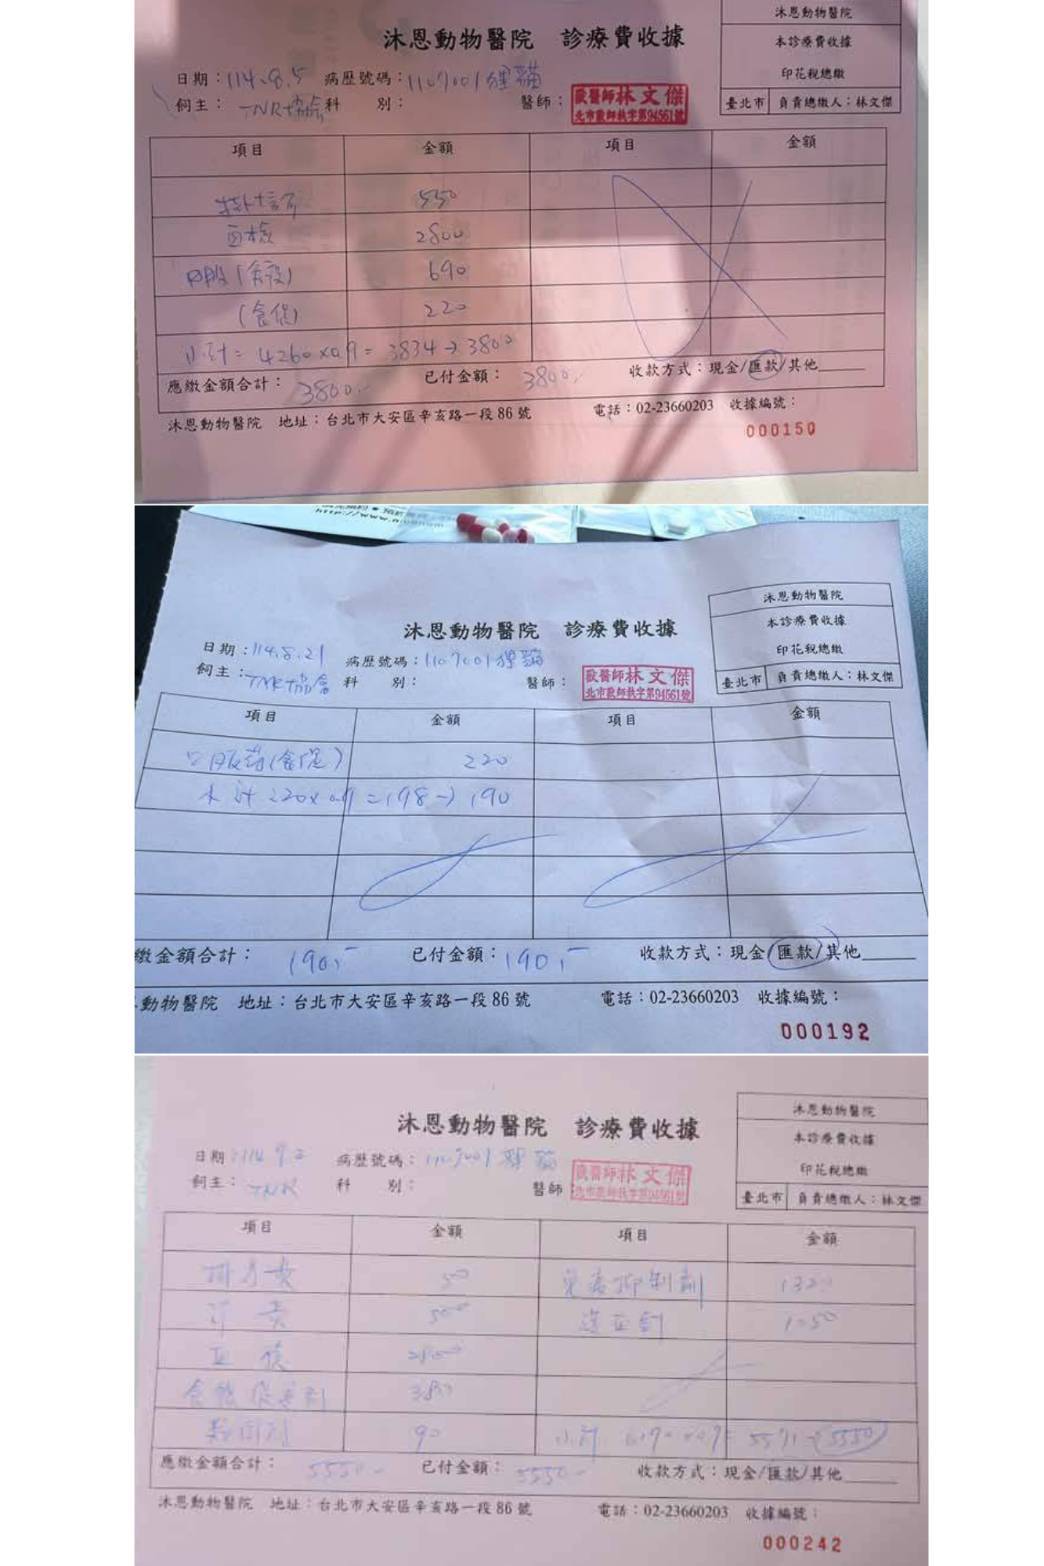 沐恩動物醫院 診療費收據
沐恩動物醫院
本診療費收據
印花稅總繳
臺北市 負責總繳人：林文傑
日期：114.8.5 病歷號碼：1107001 狸貓
飼主：TNR協會 科 別： 醫師：
獸醫師林文傑
北市獸師執字第94561號
項目 金額 項目 金額
550
血檢 2800
口服(免疫) 690
220
小計= 4260×0.9= 3834→3800
應繳金額合計：3800.- 已付金額：3800.- 收款方式：現金/匯款/其他
沐恩動物醫院 地址：台北市大安區辛亥路一段86號 電話：02-23660203 收據編號：
000150
沐恩動物醫院 診療費收據
沐恩動物醫院
本診療費收據
印花稅總繳
臺北市 負責總繳人：林文傑
日期：114.8.21 病歷號碼：1107001 狸貓
飼主：TNR協會 科 別： 醫師：
獸醫師林文傑
北市獸師執字第94561號
項目 金額 項目 金額
220
小計 220×0.9=198→190
繳金額合計：190.- 已付金額：190.- 收款方式：現金/匯款/其他
動物醫院 地址：台北市大安區辛亥路一段86號 電話：02-23660203 收據編號：
000192
沐恩動物醫院 診療費收據
沐恩動物醫院
本診療費收據
印花稅總繳
臺北市 負責總繳人：林文傑
日期：114.9.2 病歷號碼：1107001 狸貓
飼主：TNR 科 別： 醫師
獸醫師林文傑
北市獸師執字第94561號
項目 金額 項目 金額
掛號費 50 免疫抑制劑 1320
診費 500 造血劑 1050
血檢 2800
380
90 小計 6190×0.9= 5571→5550
應繳金額合計：5550.- 已付金額：5550.- 收款方式：現金/匯款/其他
沐恩動物醫院 地址：台北市大安區辛亥路一段86號 電話：02-23660203 收據編號：
000242